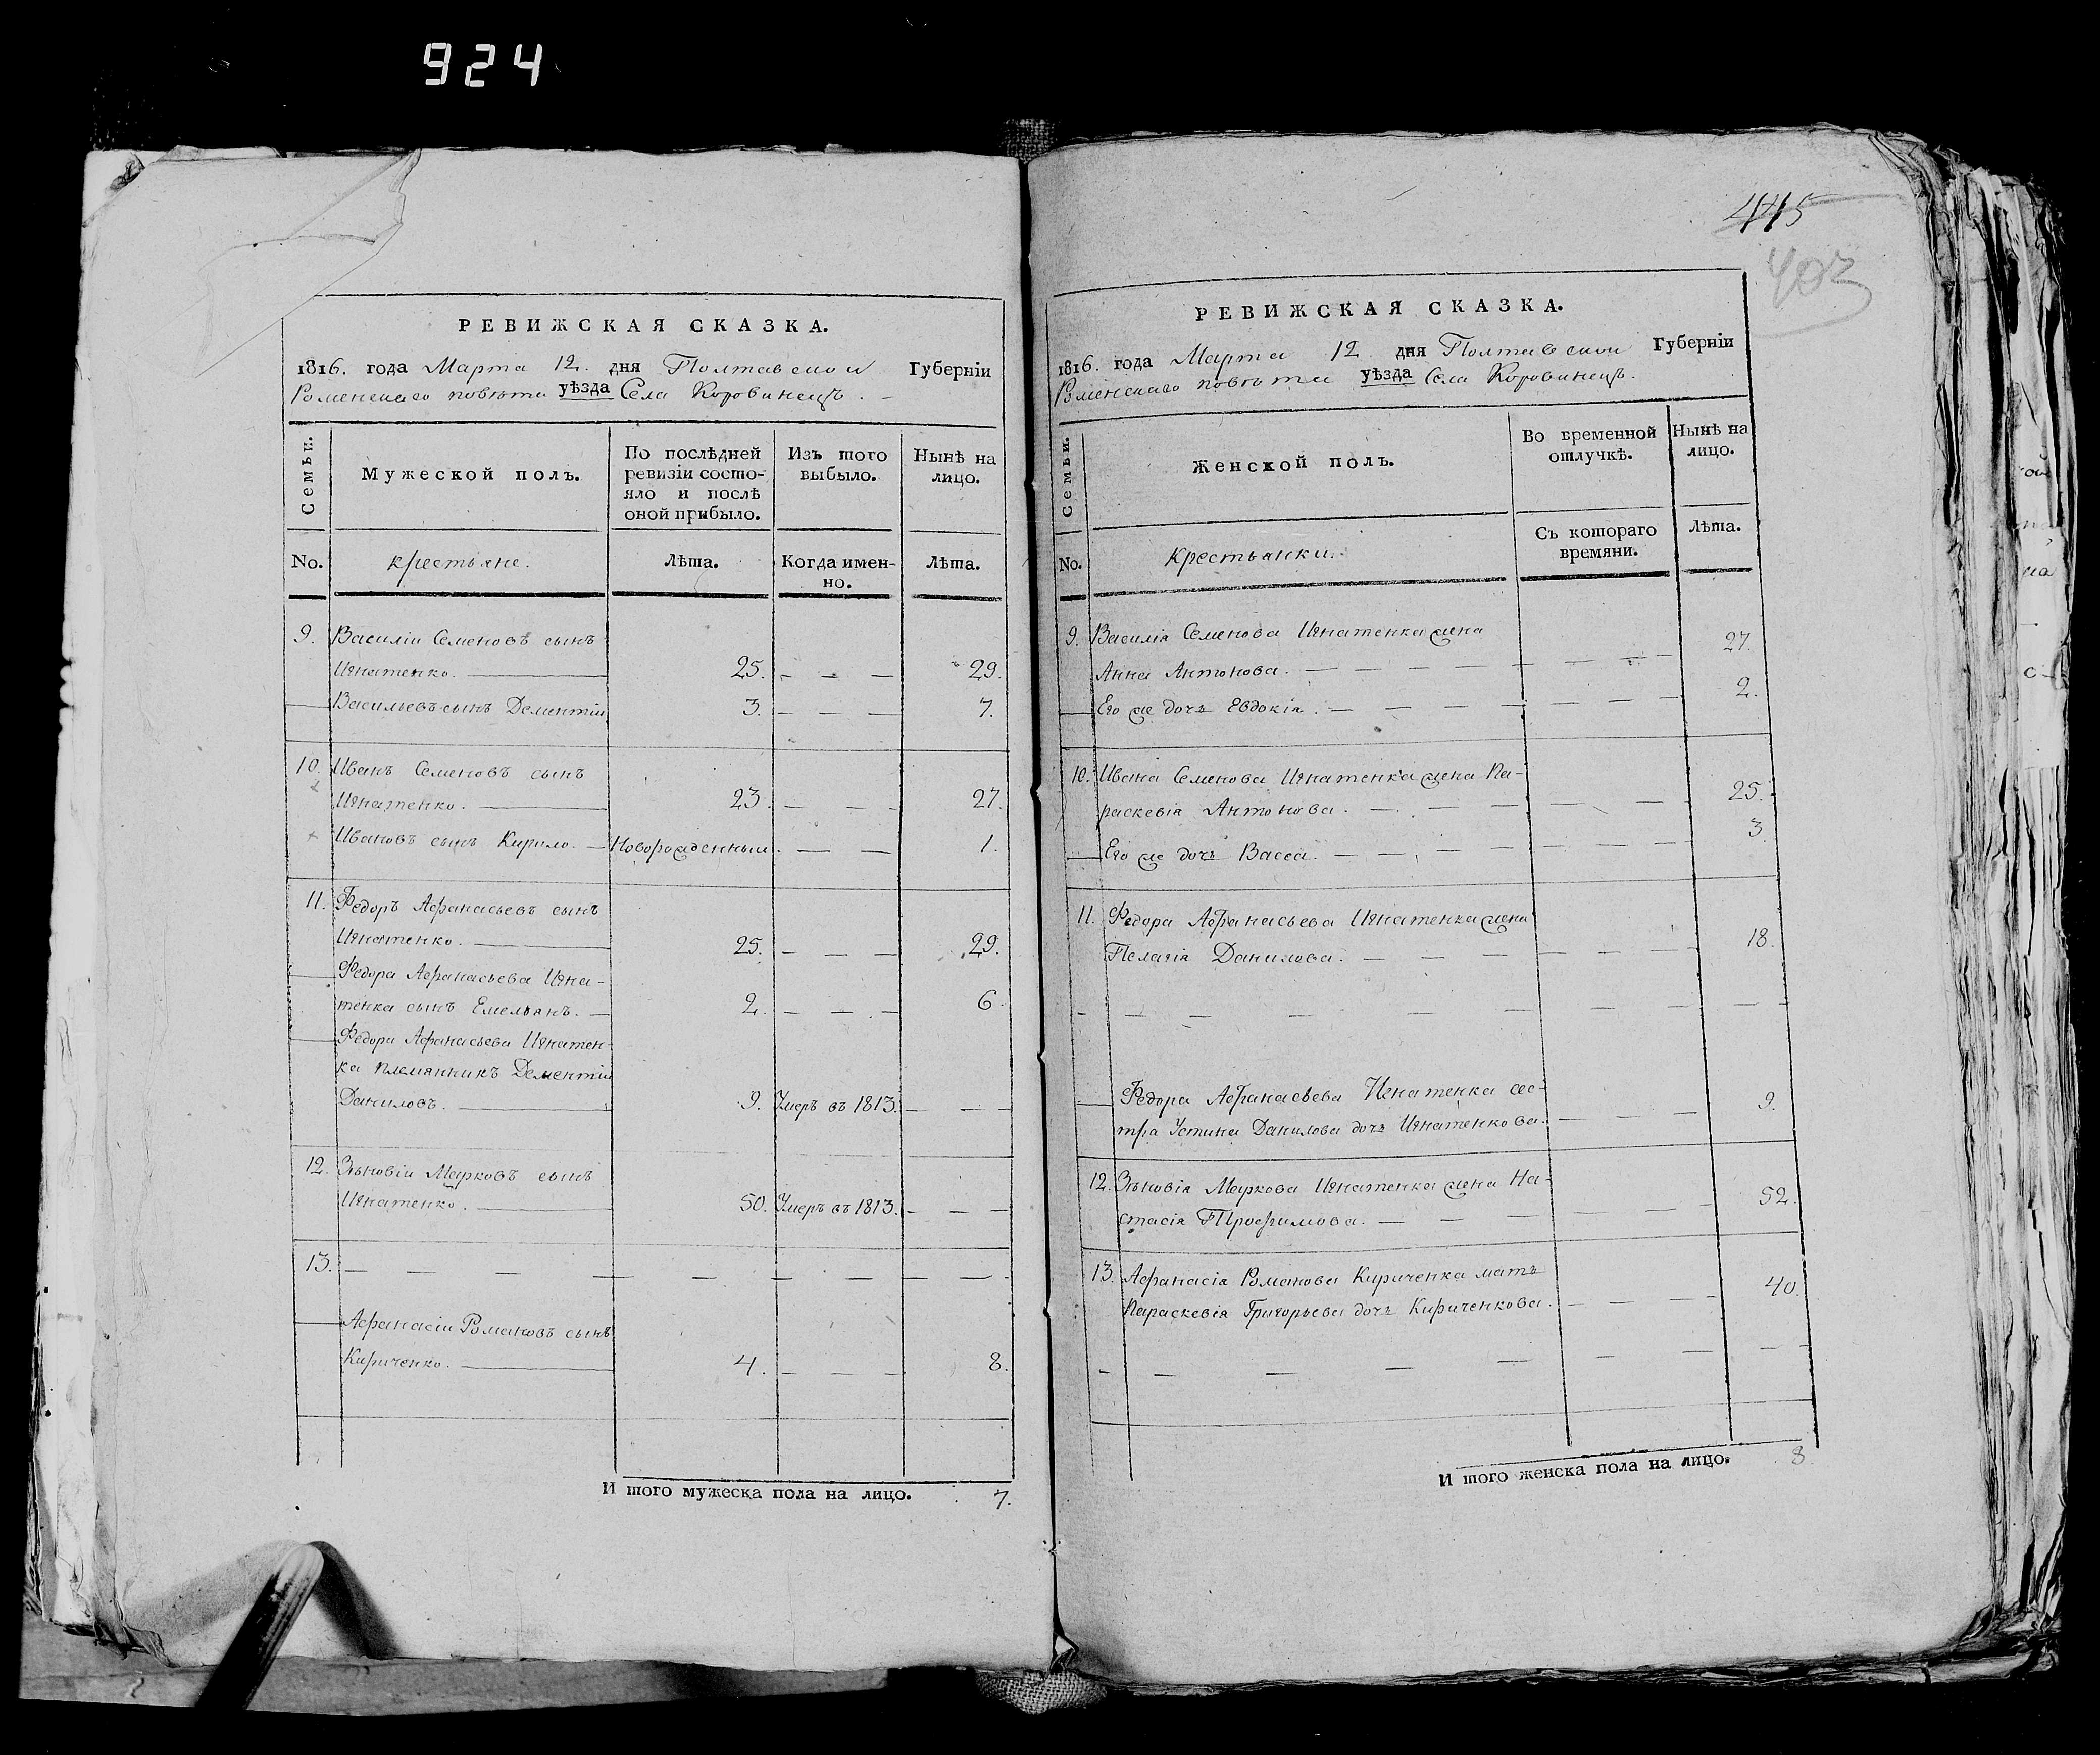 924
РЕВИЖСКАЯ СКАЗКА.
1816. года Марта 12. дня Полтавской Губерніи
Роменскаго повѣта уѣзда Села Коровинецъ.
Семьи.
Мужеской полъ.
По послѣдней ревизіи состо-
яло и послѣ оной прибыло.
Изъ того выбыло.
Нынѣ на лицо.
No.
крестьяне.
Лѣта.
Когда имен-
но.
Лѣта.
9. Василій Семеновъ сынъ
Игнатенко. 25. 29.
Васильевъ сынъ Дементій 3. 7.
10. Иванъ Семеновъ сынъ
Игнатенко. 23. 27.
Ивановъ сынъ Кирило. Новорожденный. 1.
11. Федоръ Афанасьевъ сынъ
Игнатенко. 25. 29.
Федора Афанасьева Игна-
тенка сынъ Емельянъ. 2. 6.
Федора Афанасьева Игнатен-
ка племянникъ Дементій
Даниловъ. 9. Умеръ въ 1813.
12. Зѣновій Марковъ сынъ
Игнатенко. 50. Умеръ въ 1813.
13.
Афанасій Романовъ сынъ
Кириченко. 4. 8.
И того мужеска пола на лицо. 7.
445
403
РЕВИЖСКАЯ СКАЗКА.
1816. года Марта 12 дня Полтавской Губерніи
Роменскаго повѣта уѣзда Села Коровинецъ.
Семьи.
Женской полъ.
Во временной отлучкѣ.
Нынѣ на лицо.
No.
Крестьянки.
Съ котораго времяни.
Лѣта.
9. Василія Семенова Игнатенка жена
Анна Антонова. 27.
Его же дочь Евдокія. 2.
10. Ивана Семенова Игнатенка жена Па-
раскевія Антонова. 25.
Его же дочь Васса. 3.
11. Федора Афанасьева Игнатенка жена
Пелагія Данилова. 18.
Федора Афанасьева Игнатенка сес-
тра Устина Данилова дочь Игнатенкова. 9.
12. Зѣновія Маркова Игнатенка жена На-
стасія Трофимова. 52.
13. Афанасія Романова Кириченка мать
Параскевія Григорьева дочь Кириченкова. 40.
И того женска пола на лицо. 8.